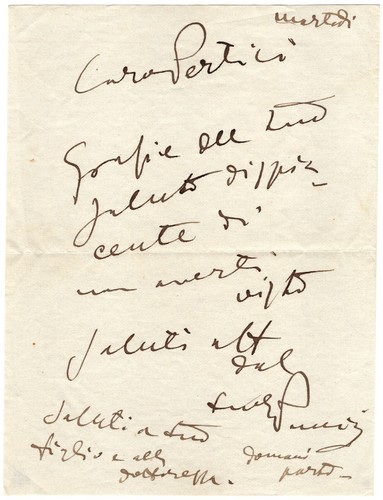 martedì
Caro Pertici
Grazie del tuo
saluto dispia-
cente di
non averti
visto
Saluti aff
dal
tuo Puccini
Saluti a tuo
figlio e alla
dottoressa.
domani
parto